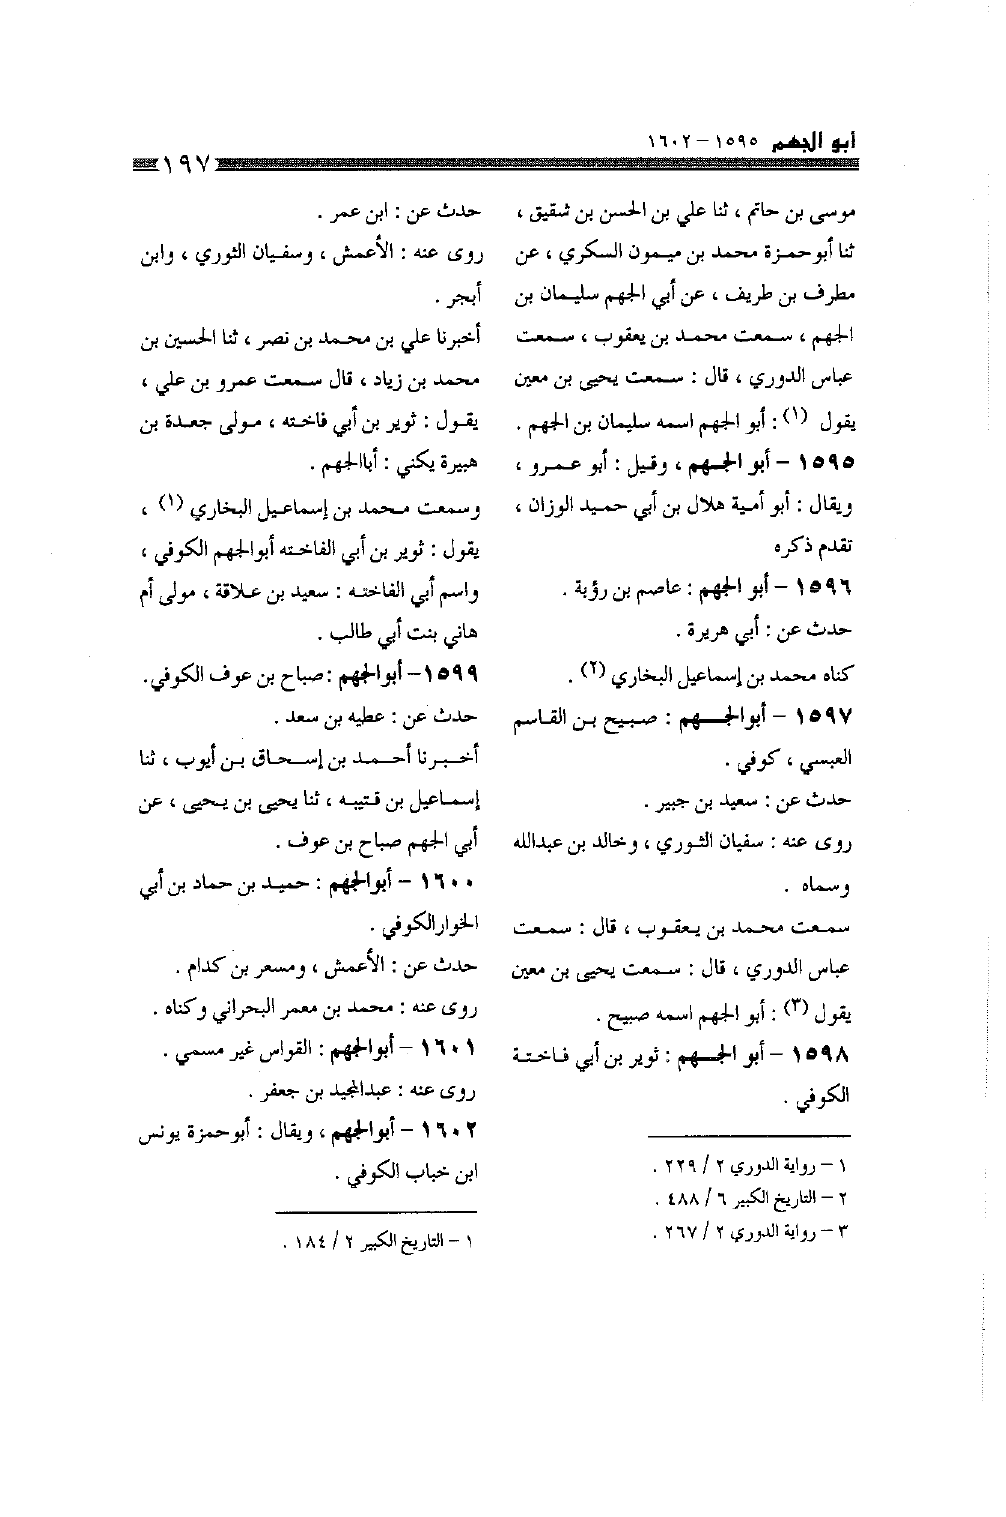 أبو الجهم ١٥٩٥ – ١٦٠٢
١٩٧
موسى بن حاتم ، ثنا علي بن الحسن بن شقيق ،
ثنا أبو حمزة محمد بن ميمون السكري ، عن
مطرف بن طريف ، عن أبي الجهم سليمان بن
الجهم ، سمعت محمد بن يعقوب ، سمعت
عباس الدوري ، قال : سمعت يحيى بن معين
يقول (١) : أبو الجهم اسمه سليمان بن الجهم .
١٥٩٥ – أبو الجهم ، وقيل : أبو عمرو ،
ويقال : أبو أمية هلال بن أبي حميد الوزان ،
تقدم ذكره
١٥٩٦ – أبو الجهم : عاصم بن رؤبة .
حدث عن : أبي هريرة .
كناه محمد بن إسماعيل البخاري (٢) .
١٥٩٧ – أبوالجهم : صبيح بن القاسم
العبسي ، كوفي .
حدث عن : سعيد بن جبير .
روى عنه : سفيان الثوري ، وخالد بن عبدالله
وسماه .
سمعت محمد بن يعقوب ، قال : سمعت
عباس الدوري ، قال : سمعت يحيى بن معين
يقول (٣) : أبو الجهم اسمه صبيح .
١٥٩٨ – أبو الجهم : ثوير بن أبي فاختة
الكوفي .
١ – رواية الدوري ٢ / ٢٢٩ .
٢ – التاريخ الكبير ٦ / ٤٨٨ .
٣ – رواية الدوري ٢ / ٢٦٧ .
حدث عن : ابن عمر .
روى عنه : الأعمش ، وسفيان الثوري ، وابن
أبجر .
أخبرنا علي بن محمد بن نصر ، ثنا الحسين بن
محمد بن زياد ، قال سمعت عمرو بن علي ،
يقول : ثوير بن أبي فاخته ، مولى جعدة بن
هبيرة يكني : أباالجهم .
وسمعت محمد بن إسماعيل البخاري (١) ،
يقول : ثوير بن أبي الفاخته أبوالجهم الكوفي ،
واسم أبي الفاخته : سعيد بن علاقة ، مولى أم
هاني بنت أبي طالب .
١٥٩٩– أبوالجهم :صباح بن عوف الكوفي.
حدث عن : عطيه بن سعد .
أخبرنا أحمد بن إسحاق بن أيوب ، ثنا
إسماعيل بن قتيبه ، ثنا يحيى بن يحيى ، عن
أبي الجهم صباح بن عوف .
١٦٠٠ – أبوالجهم : حميد بن حماد بن أبي
الخوارالكوفي .
حدث عن : الأعمش ، ومسعر بن كدام .
روى عنه : محمد بن معمر البحراني وكناه .
١٦٠١ – أبوالجهم : القواس غير مسمي .
روى عنه : عبدالمجيد بن جعفر .
١٦٠٢ – أبوالجهم ، ويقال : أبوحمزة يونس
ابن خباب الكوفي .
١ – التاريخ الكبير ٢ / ١٨٤ .